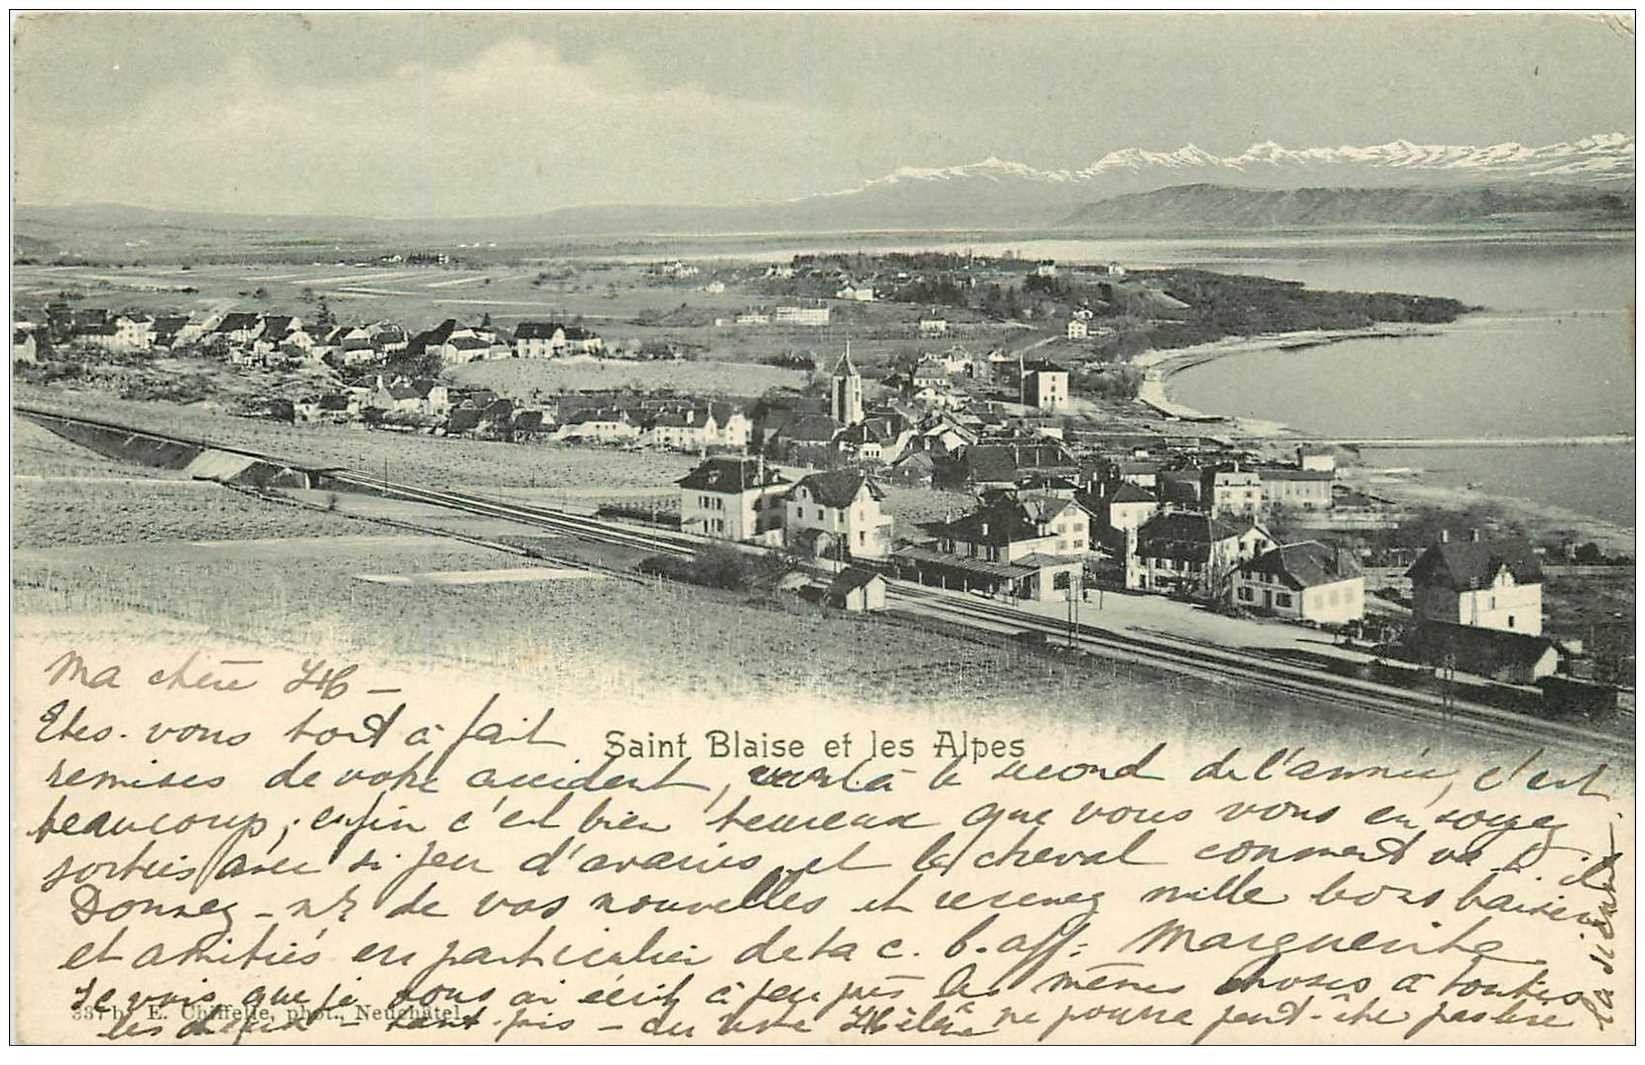 Ma chère
Etes-vous tout à fait
Saint Blaise et les Alpes
remises de votre accident, voilà le second de l'année, c'est
beaucoup; enfin c'est bien heureux que vous vous en soyez
sorties avec si peu d'avaries et le cheval comment va t-il
Donnez-ns de vos nouvelles et recevez mille bons baisers
et amitiés en particulier de ta c. b. aff: Marguerite
Je vois que je vous ai écrit à peu près les mêmes choses à toutes
337b. E. Chiffelle, phot., Neuchâtel.
les deux - tant pis - au reste Hélène ne pourra peut-être pas lire
la sienne.